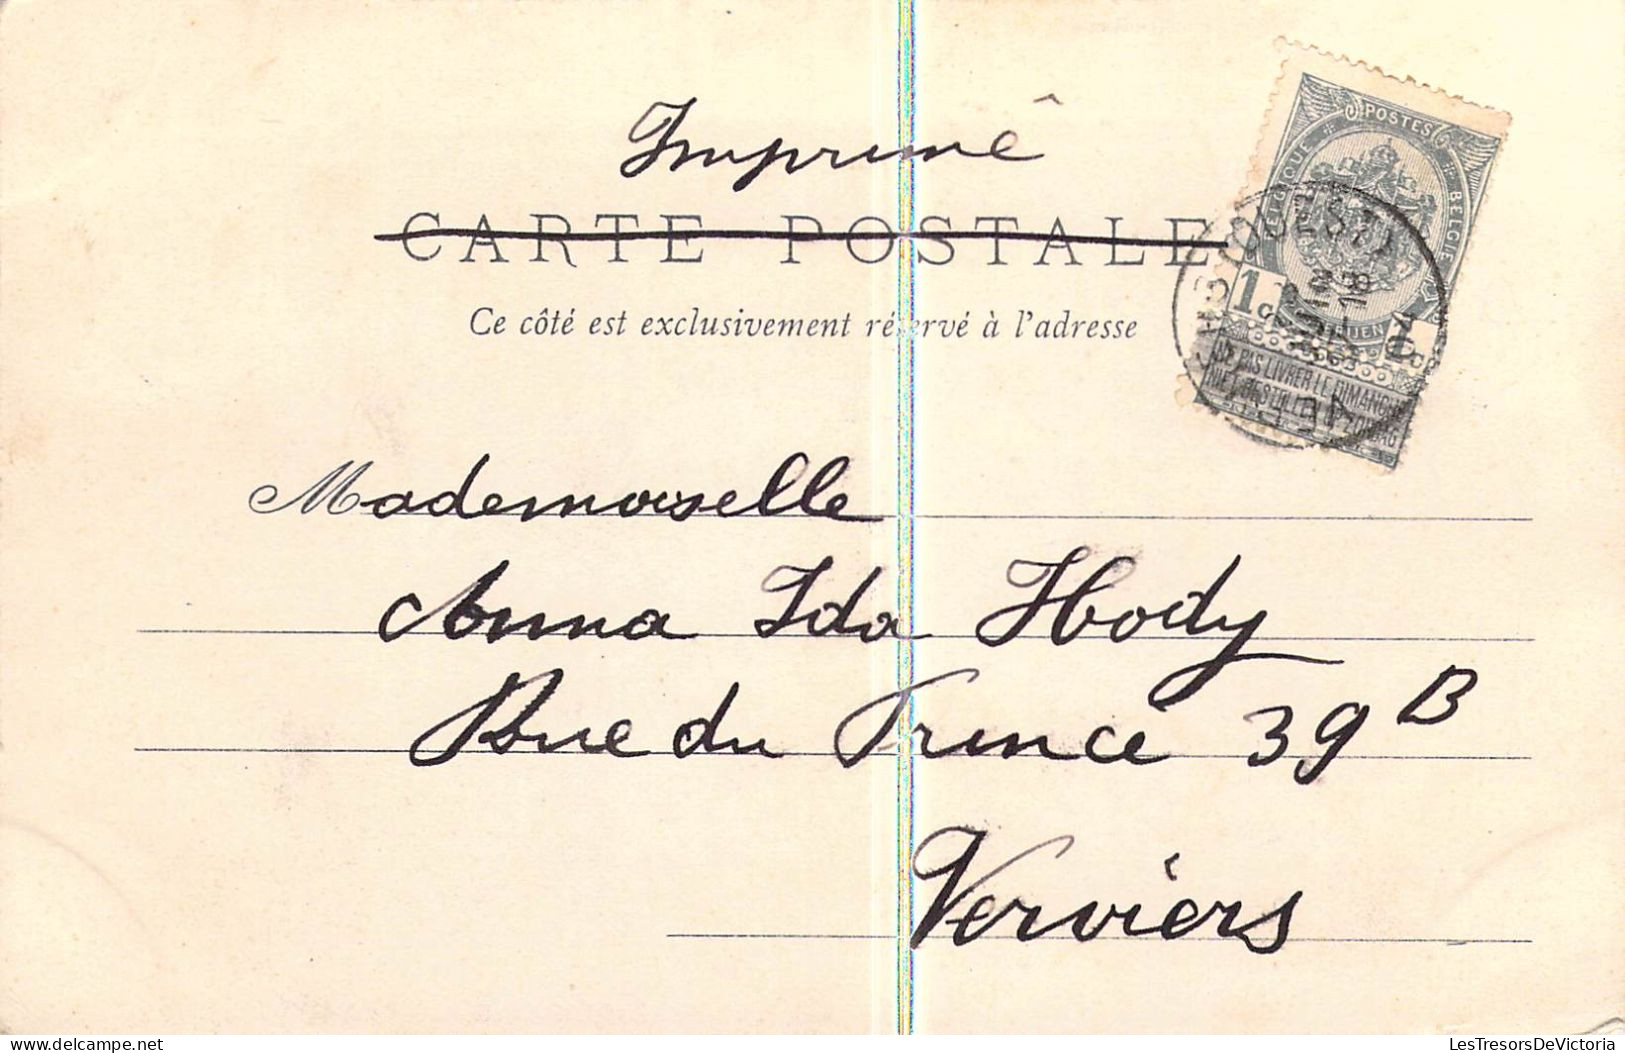 Imprimé
CARTE POSTALE
Ce côté est exclusivement réservé à l'adresse
POSTES
BELGIQUE
BELGIË
NE PAS LIVRER LE DIMANCHE
NIET BESTELLEN OP ZONDAG
Mademoiselle
Anna Ida Hody
Rue du Prince 39 B
Verviers
LesTresorsDeVictoria